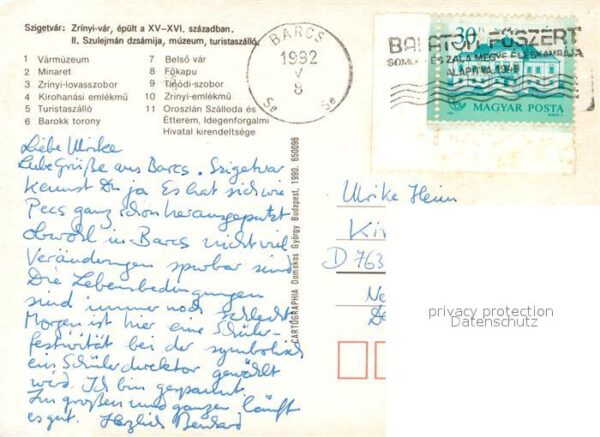 Szigetvár: Zrínyi-vár, épült a XV-XVI. században.
II. Szulejmán dzsámija, múzeum, turistaszálló.
1 Vármúzeum
2 Minaret
3 Zrínyi-lovasszobor
4 Kirohanási emlékmű
5 Turistaszálló
6 Barokk torony
7 Belső vár
8 Főkapu
9 Tinódi-szobor
10 Zrínyi-emlékmű
11 Oroszlán Szálloda és
Étterem, Idegenforgalmi
Hivatal kirendeltsége
BARCS
1992
V
8
30 Ft
BALATON FÜSZÉRT
SOMOGY- ÉS ZALA MEGYE ÉLÉSKAMRÁJA
ALAPÍTVA
MAGYAR POSTA
CARTOGRAPHIA Domokos György Budapest, 1990. 650096
Liebe Ulrike
Liebe Grüße aus Barcs. Szigetvar
kennst Du ja. Es hat sich wie
Pecs ganz schön herausgeputzt
obwohl in Barcs nicht viel
Veränderungen spürbar sind
Die Lebensbedingungen
sind immer noch schlecht
Morgen ist hier eine Schüler-
festivität bei der symbolisch
ein Schülerdirektor gewählt
wird. Ich bin gespannt.
Im großen und ganzen läuft
es gut. Herzlich
Ulrike Heim
D 763
privacy protection
Datenschutz